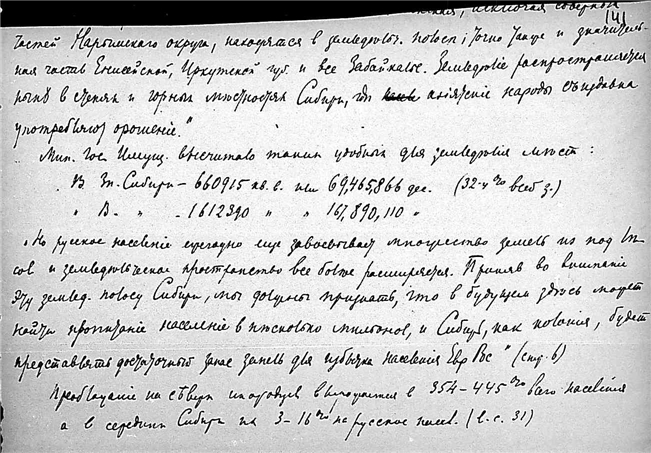 исключая северных
141
частей Нарымского округа, находятся в земледѣльч. полосѣ; точно также и значитель-
ная часть Енисейской, Иркутской губ. и все Забайкалье. Земледѣліе распространяется
нынѣ в степных и горных мѣстностях Сибири, гдѣ народы съиздавна
употребляют орошеніе."
Мин. Гос. Имущ. высчитало таких удобных для земледѣлія мѣст:
В Зп. Сибири – 660915 кв. в. или 69,465,866 дес. (32-у % всей з.)
" В. " " – 1612390 " " 167,890,110 "
"Но русское населеніе ежегодно еще завоевывает множество земель из под лѣ-
сов и земледѣльческое пространство все болѣе расширяется. Приняв во вниманіе
эту землед. полосу Сибири, мы должны признать, что в будущем здѣсь может
найти пропитаніе населеніе в нѣсколько мильонов, и Сибирь, как колонія, будет
представлять достаточный запас земель для избытка населенія Евр Рос" (стр. 6)
Преобладаніе на сѣверѣ инородцев выражается в 354–445 % всего населенія
а в серединѣ Сибири на 3–16 % на русское насел. (l. c. 31)